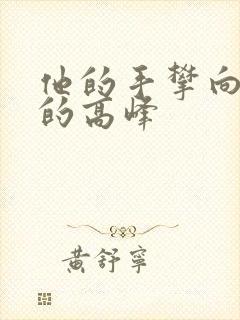 他的手攀向
的高峰
黄舒寧